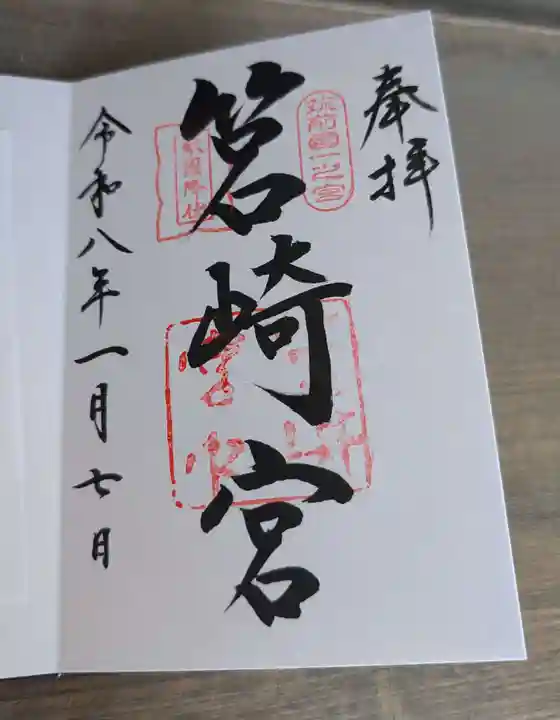 奉拝
筑前國一之宮
敵國降伏
筥崎宮
令和八年一月七日